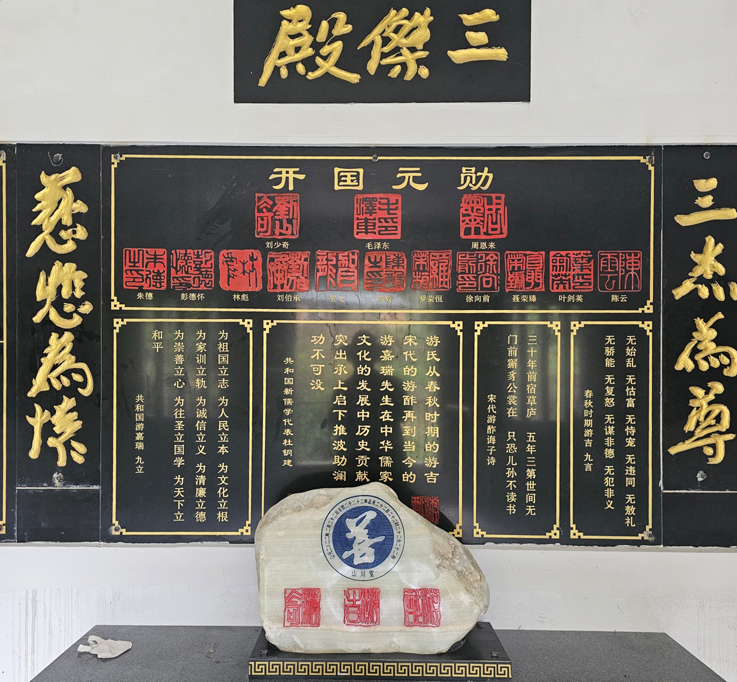 三傑殿
三杰為尊
慈悲為懷
开国元勋
刘少奇 毛泽东 周恩来
朱德 彭德怀 林彪 刘伯承 罗荣桓 徐向前 聂荣臻 叶剑英 陈云
无始乱 无怙富 无恃宠 无违同 无敖礼
无骄能 无复怒 无谋非德 无犯非义
春秋时期游吉 九言
三十年前宿草庐 五年三第世间无
门前獬豸公裳在 只恐儿孙不读书
宋代游酢诲子诗
游氏从春秋时期的游吉
宋代的游酢再到当今的
游嘉瑞先生在中华儒家
文化的发展中历史贡献
突出承上启下推波助澜
功不可没
共和国新儒学代表杜钢建
为祖国立志 为人民立本 为文化立根
为家训立轨 为诚信立义 为清廉立德
为崇善立心 为往圣立国学 为天下立
和平
共和国游嘉瑞 九立
善
山川堂